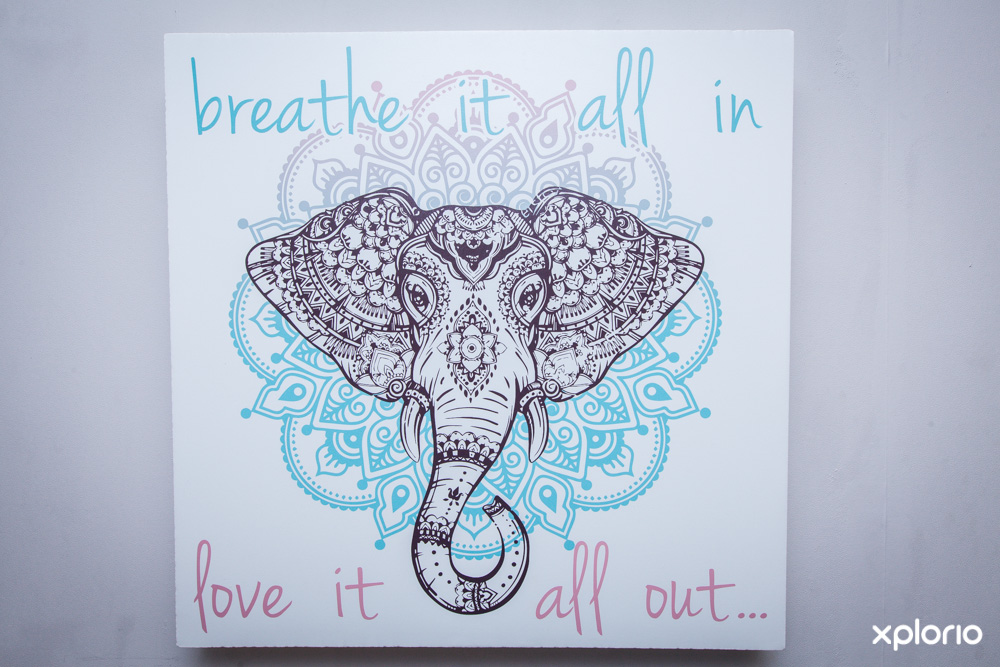 breathe it all in
love it all out...
xplorio